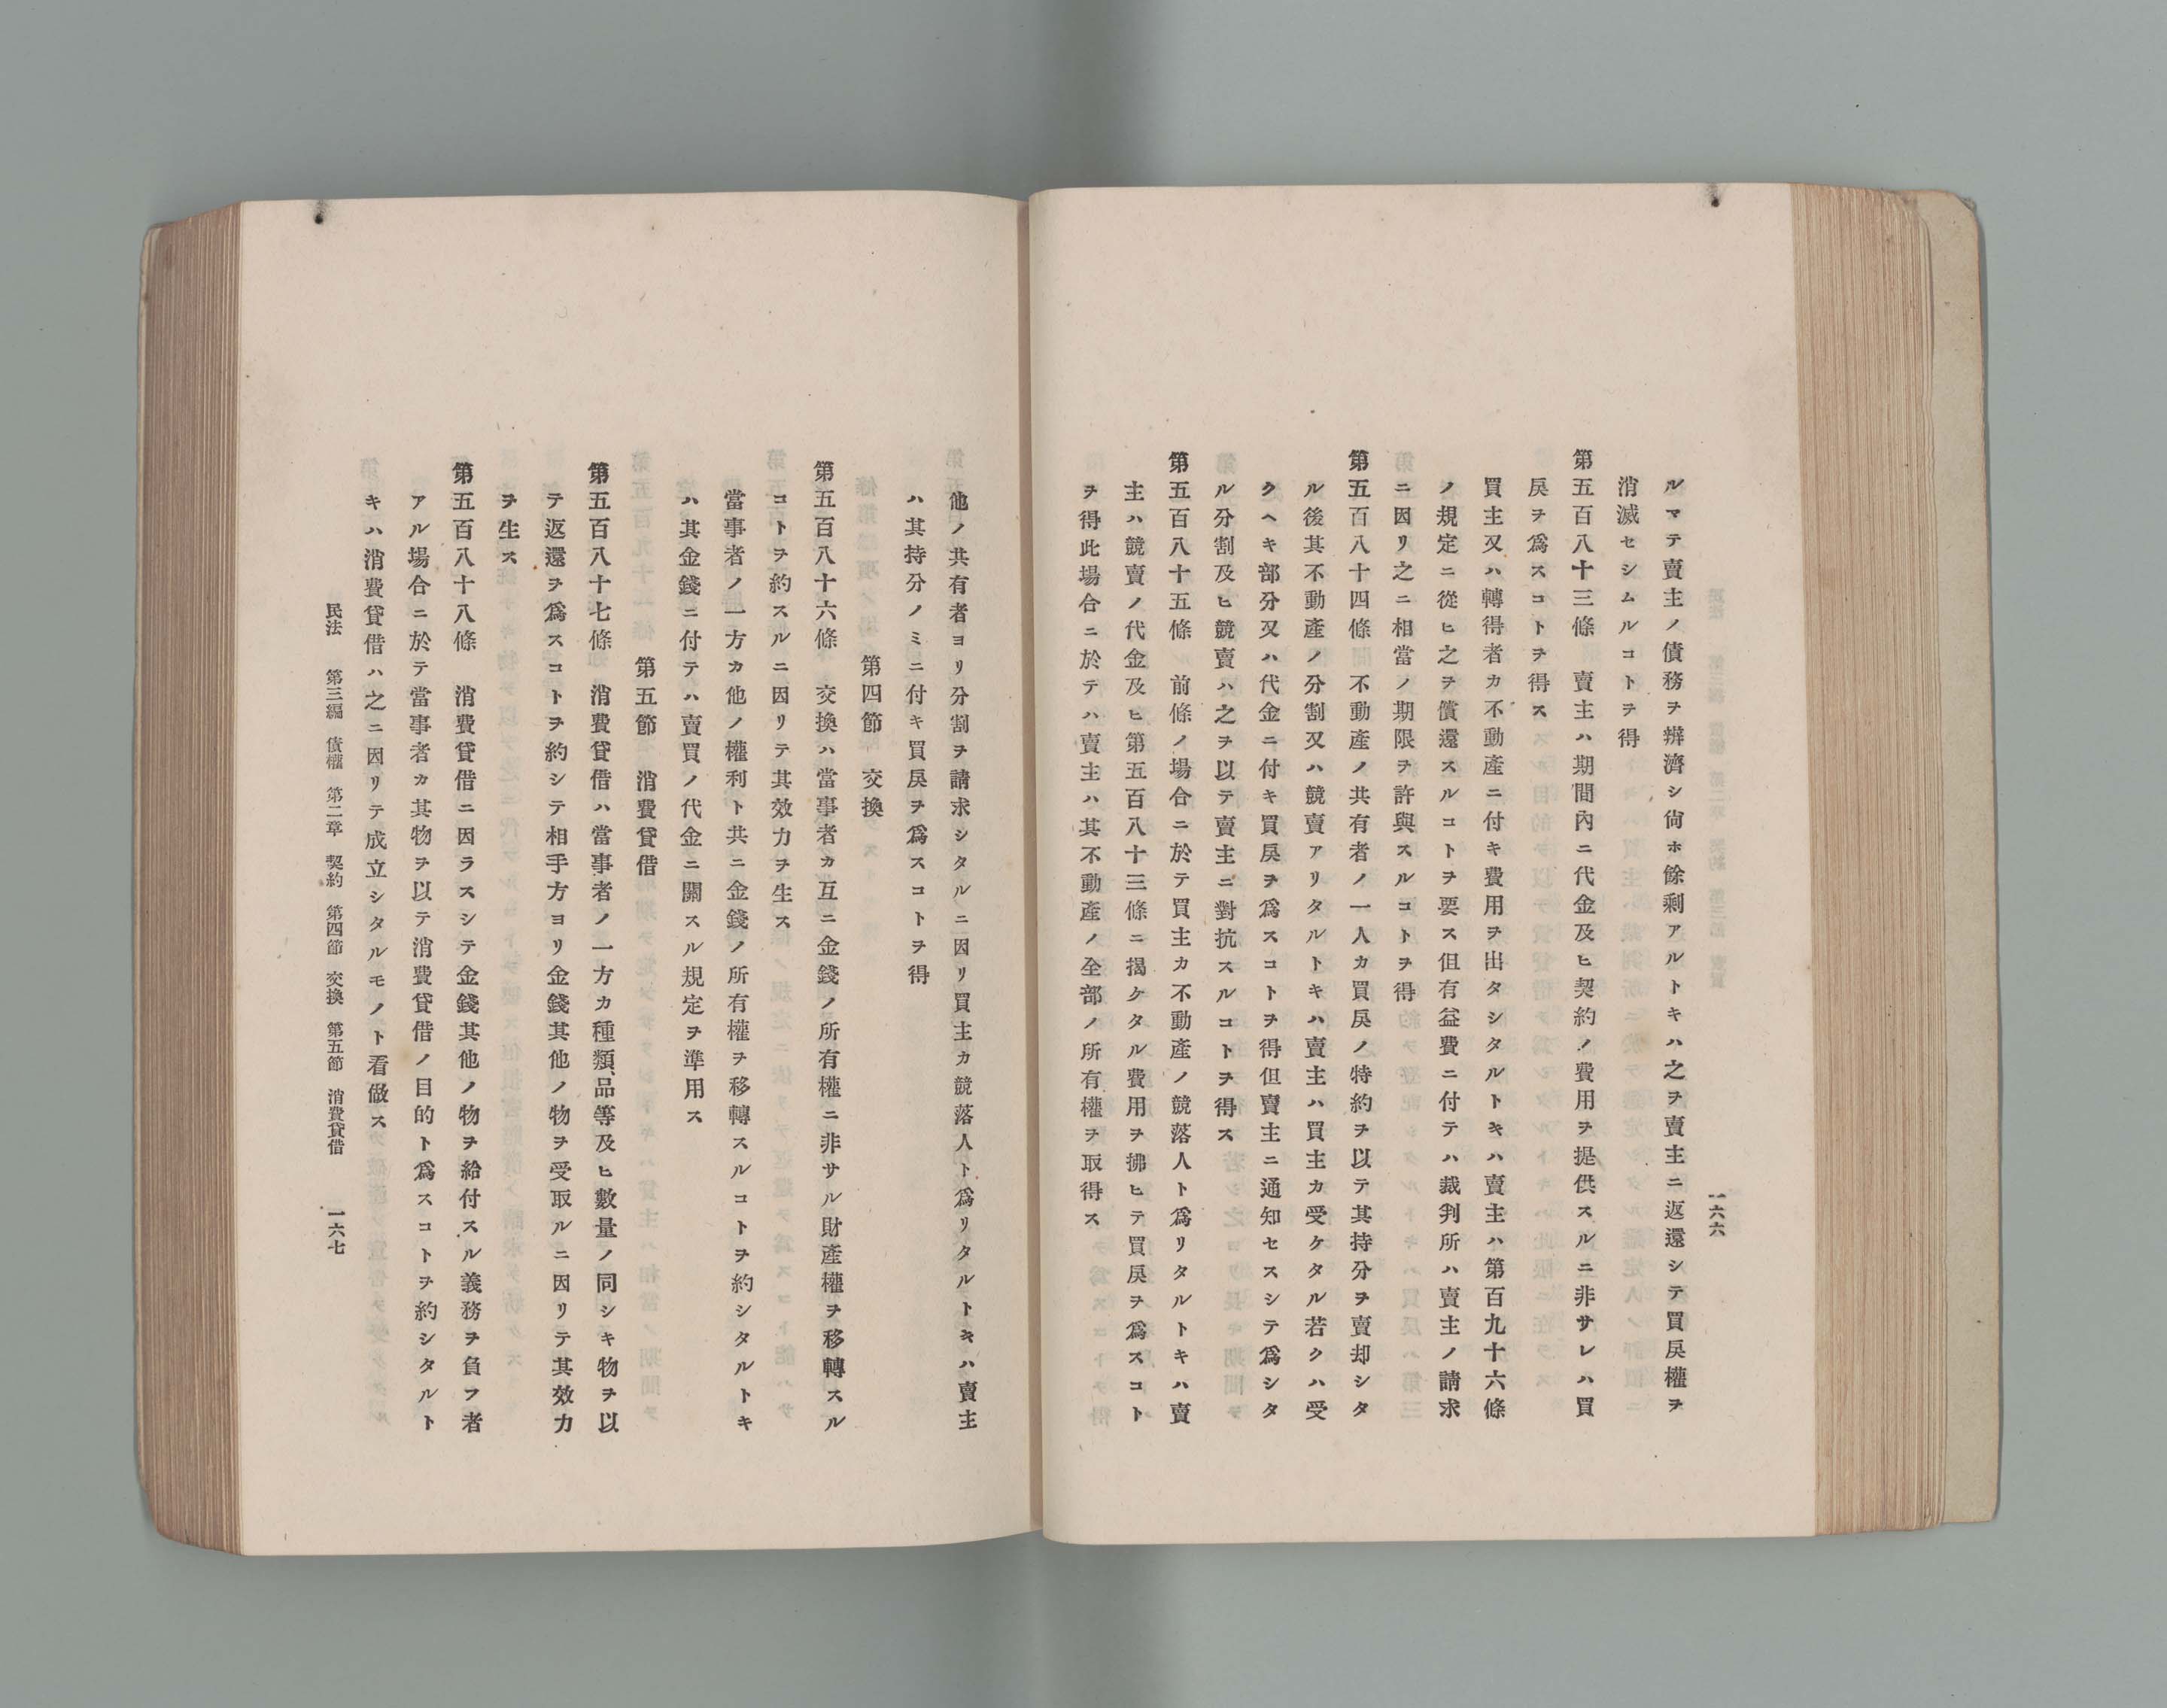 一六六
ルマテ賣主ノ債務ヲ辨濟シ尙ホ餘剩アルトキハ之ヲ賣主ニ返還シテ買戾權ヲ
消滅セシムルコトヲ得
第五百八十三條　賣主ハ期間內ニ代金及ヒ契約ノ費用ヲ提供スルニ非サレハ買
戾ヲ爲スコトヲ得ス
買主又ハ轉得者カ不動產ニ付キ費用ヲ出タシタルトキハ賣主ハ第百九十六條
ノ規定ニ從ヒ之ヲ償還スルコトヲ要ス但有益費ニ付テハ裁判所ハ賣主ノ請求
ニ因リ之ニ相當ノ期限ヲ許與スルコトヲ得
第五百八十四條　不動產ノ共有者ノ一人カ買戾ノ特約ヲ以テ其持分ヲ賣却シタ
ル後其不動產ノ分割又ハ競賣アリタルトキハ賣主ハ買主カ受ケタル若クハ受
クヘキ部分又ハ代金ニ付キ買戾ヲ爲スコトヲ得但賣主ニ通知セスシテ爲シタ
ル分割及ヒ競賣ハ之ヲ以テ賣主ニ對抗スルコトヲ得ス
第五百八十五條　前條ノ場合ニ於テ買主カ不動產ノ競落人ト爲リタルトキハ賣
主ハ競賣ノ代金及ヒ第五百八十三條ニ揭ケタル費用ヲ拂ヒテ買戾ヲ爲スコト
ヲ得此場合ニ於テハ賣主ハ其不動產ノ全部ノ所有權ヲ取得ス
他ノ共有者ヨリ分割ヲ請求シタルニ因リ買主カ競落人ト爲リタルトキハ賣主
ハ其持分ノミニ付キ買戾ヲ爲スコトヲ得
第四節　交換
第五百八十六條　交換ハ當事者カ互ニ金錢ノ所有權ニ非サル財產權ヲ移轉スル
コトヲ約スルニ因リテ其效力ヲ生ス
當事者ノ一方カ他ノ權利ト共ニ金錢ノ所有權ヲ移轉スルコトヲ約シタルトキ
ハ其金錢ニ付テハ賣買ノ代金ニ關スル規定ヲ準用ス
第五節　消費貸借
第五百八十七條　消費貸借ハ當事者ノ一方カ種類、品等及ヒ數量ノ同シキ物ヲ以
テ返還ヲ爲スコトヲ約シテ相手方ヨリ金錢其他ノ物ヲ受取ルニ因リテ其效力
ヲ生ス
第五百八十八條　消費貸借ニ因ラスシテ金錢其他ノ物ヲ給付スル義務ヲ負フ者
アル場合ニ於テ當事者カ其物ヲ以テ消費貸借ノ目的ト爲スコトヲ約シタルト
キハ消費貸借ハ之ニ因リテ成立シタルモノト看做ス
民法　第三編　債權　第二章　契約　第四節　交換　第五節　消費貸借　一六七